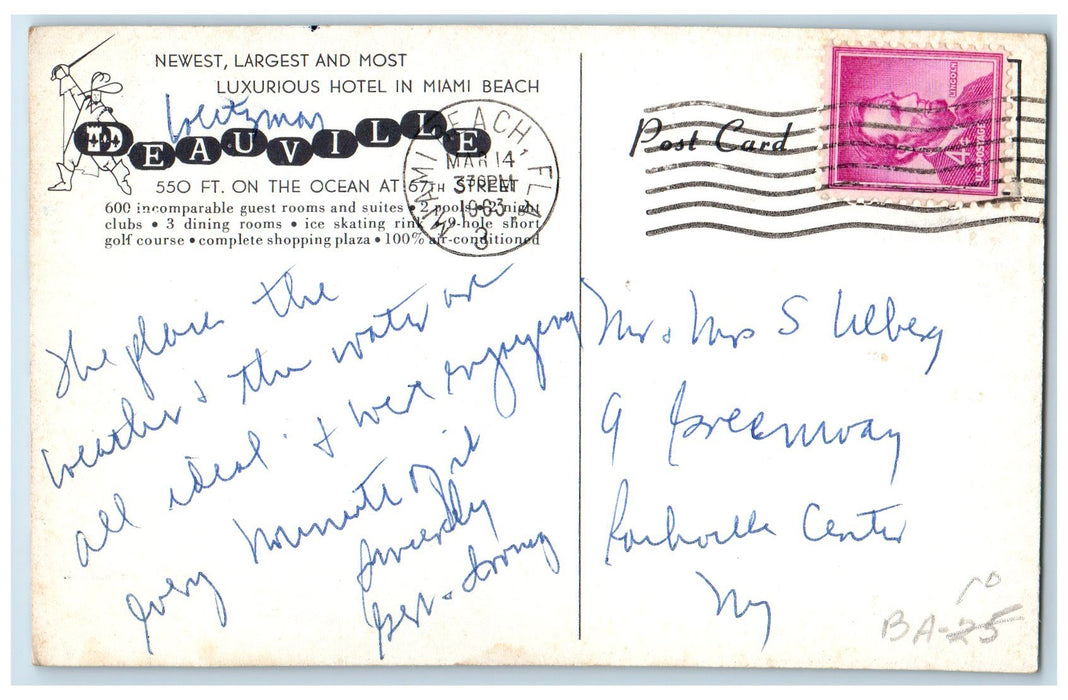 NEWEST, LARGEST AND MOST
LUXURIOUS HOTEL IN MIAMI BEACH
Weitzman
DEAUVILLE
550 FT. ON THE OCEAN AT 67TH STREET
600 incomparable guest rooms and suites • 2 pools • 2 night
clubs • 3 dining rooms • ice skating rink • 9-hole short
golf course • complete shopping plaza • 100% air-conditioned
MIAMI BEACH, FLA
MAR 14
PM
1963
3
Post Card
LINCOLN
4¢
U.S. POSTAGE
The place the
weather & the water are
all ideal & were enjoying
every minute of it
Sincerely
& Irving
Mr & Mrs S
9 Greenway
Rockville Center
NY
10
BA-25